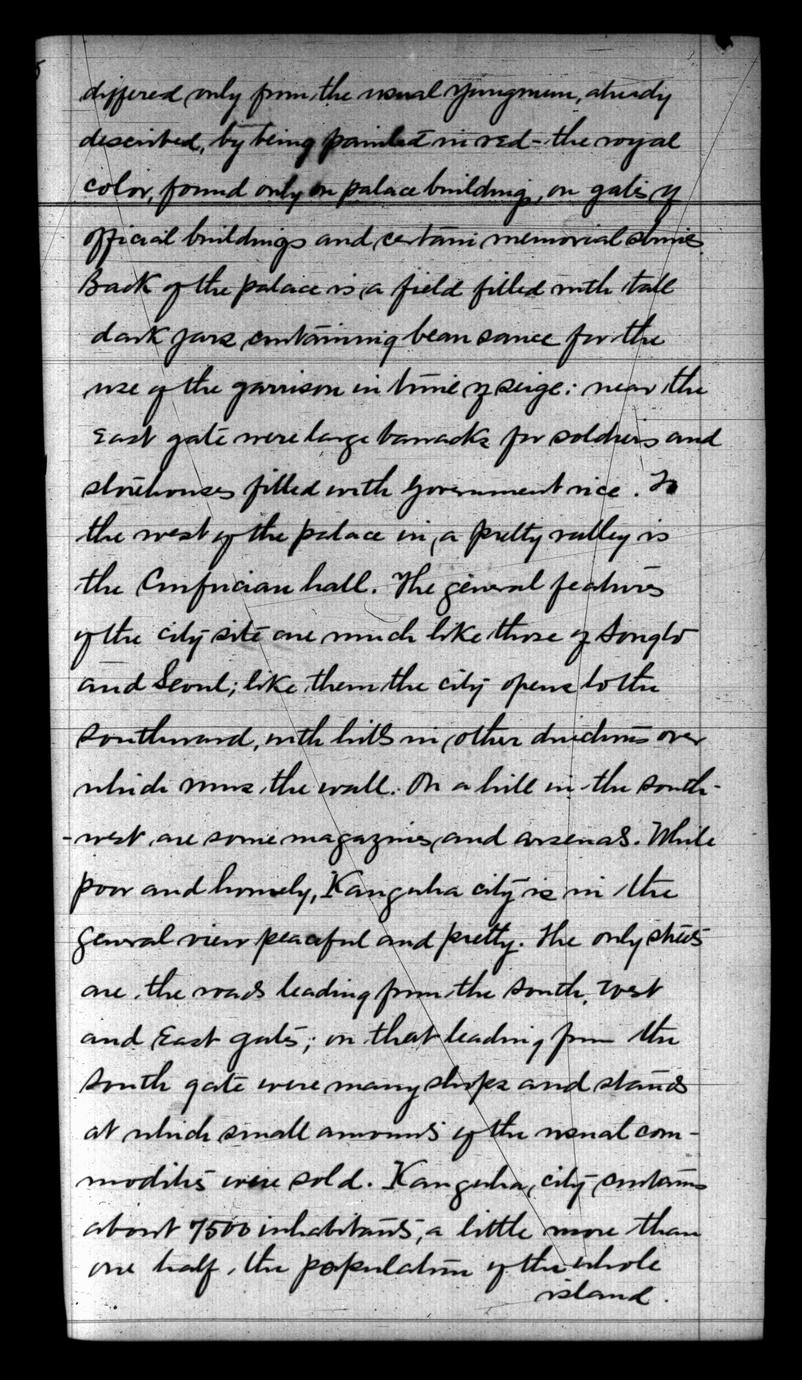 differed only from the usual Yungmun, already
described, by being painted in red - the royal
color, found only on palace buildings, on gates of
official buildings and certain memorial shrines.
Back of the palace is a field filled with tall
dark jars containing bean sauce for the
use of the garrison in time of seige: near the
East gate were large barracks for soldiers and
storehouses filled with Government rice. To
the west of the palace in a pretty valley is
the Confucian hall. The general features
of the city site are much like those of Songto
and Seoul; like them the city opens to the
Southward, with hills in other directions over
which runs the wall. On a hill in the South-
-west are some magazines and arsenals. While
poor and homely, Kangwha city is in the
general view peaceful and pretty. The only streets
are the roads leading from the South, West
and East gates; on that leading from the
South gate were many shops and stands
at which small amounts of the usual com-
modities were sold. Kangwha city contains
about 7500 inhabitants, a little more than
one half the population of the whole
island.